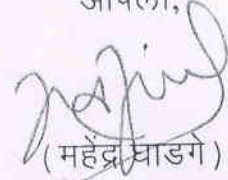 आपला,
(महेंद्र घाडगे)